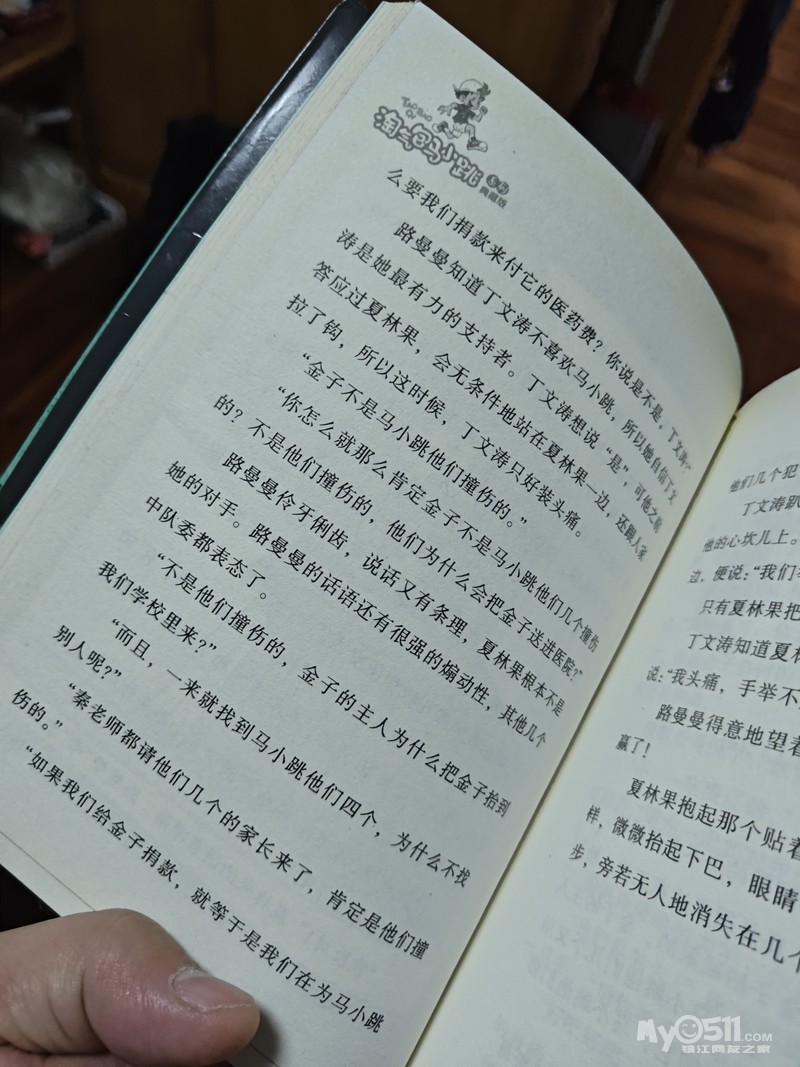 TAO QI BAO
淘气包马小跳
典藏版
么要我们捐款来付它的医药费?你说是不是,丁文涛?”
路曼曼知道丁文涛不喜欢马小跳,所以她自信丁文
涛是她最有力的支持者。丁文涛想说“是”,可他之前
答应过夏林果,会无条件地站在夏林果一边,还跟人家
拉了钩,所以这时候,丁文涛只好装头痛。
“金子不是马小跳他们撞伤的。”
“你怎么就那么肯定金子不是马小跳他们几个撞伤
的?不是他们撞伤的,他们为什么会把金子送进医院?”
路曼曼伶牙俐齿,说话又有条理,夏林果根本不是
她的对手。路曼曼的话语还有很强的煽动性,其他几个
中队委都表态了。
“不是他们撞伤的,金子的主人为什么把金子抬到
我们学校里来?”
“而且,一来就找到马小跳他们四个,为什么不找
别人呢?”
“秦老师都请他们几个的家长来了,肯定是他们撞
伤的。”
“如果我们给金子捐款,就等于是我们在为马小跳
他们几个犯
丁文涛趴
他的心坎儿上。
边,便说:“我们
只有夏林果把
丁文涛知道夏林
说:“我头痛,手举不
路曼曼得意地望着
赢了!
夏林果抱起那个贴着
样,微微抬起下巴,眼睛
步,旁若无人地消失在几个
My0511.COM
镇江网友之家